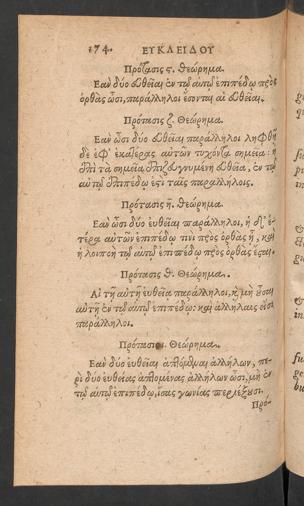 174. ΕΥΚΛΕΙΔΟΥ
Πρότασις ϛ. Θεώρημα.
Εαν δύο εὐθεῖαι ἐν τῷ αὐτῷ ἐπιπέδῳ πρὸς
ὀρθὰς ὦσι, παράλληλοι ἔσονται αἱ εὐθεῖαι.
Πρότασις ζ. Θεώρημα.
Εαν ὦσι δύο εὐθεῖαι παράλληλοι, ληφθῇ
δὲ ἐφ' ἑκατέρας αὐτῶν τυχόντα σημεῖα: ἡ
ἐπὶ τὰ σημεῖα ἐπιζευγνυμένη εὐθεῖα, ἐν τῷ
αὐτῷ ἐπιπέδῳ ἐςὶ ταῖς παραλλήλοις.
Πρότασις η. Θεώρημα.
Εαν ὦσι δύο ἐυθεῖαι παράλληλοι, ἡ δὲ ἑ-
τέρα αὐτῶν ἐπιπέδῳ τινι πρὸς ὀρθὰς ᾖ, καὶ
ἡ λοιπὴ τῷ αὐτῷ ἐπιπέδῳ πρὸς ὀρθὰς ἔςαι.
Πρότασις θ. Θεώρημα.
Αἱ τῇ αὐτῇ ἐυθεία παράλληλοι, καὶ μὴ οὖσαι
αὐτῇ ἐν τῷ αὐτῷ ἐπιπέδῳ: καὶ ἀλλήλαις εἰσὶ
παράλληλοι.
Πρότασις ι. Θεώρημα.
Εαν δύο ευθεῖαι ἁπτόμεναι ἀλλήλων, πε-
ρὶ δύο ἐυθείας ἁπτομένας ἀλλήλων ὦσι, μὴ ἐν
τῷ αὐτῷ ἐπιπέδῳ, ἴσας γωνίας περιέξουσι.
Πρό-